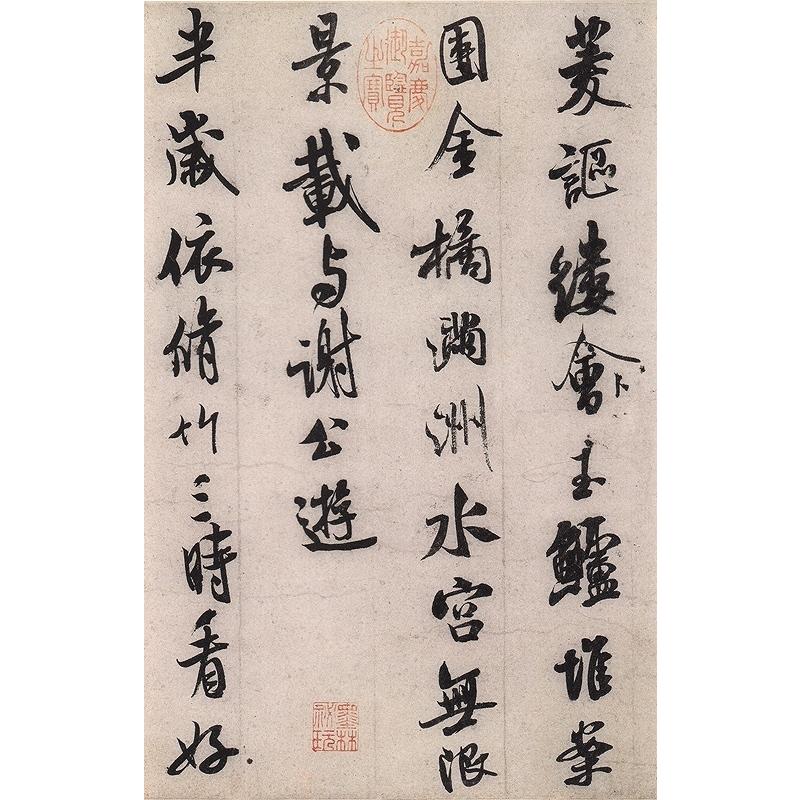 菱謳縷會玉鱸堆案
團金橘滿洲水宮無限
景載与謝公遊
半歲依脩竹三時看好
嘉慶御覽之寶
墨林秘玩